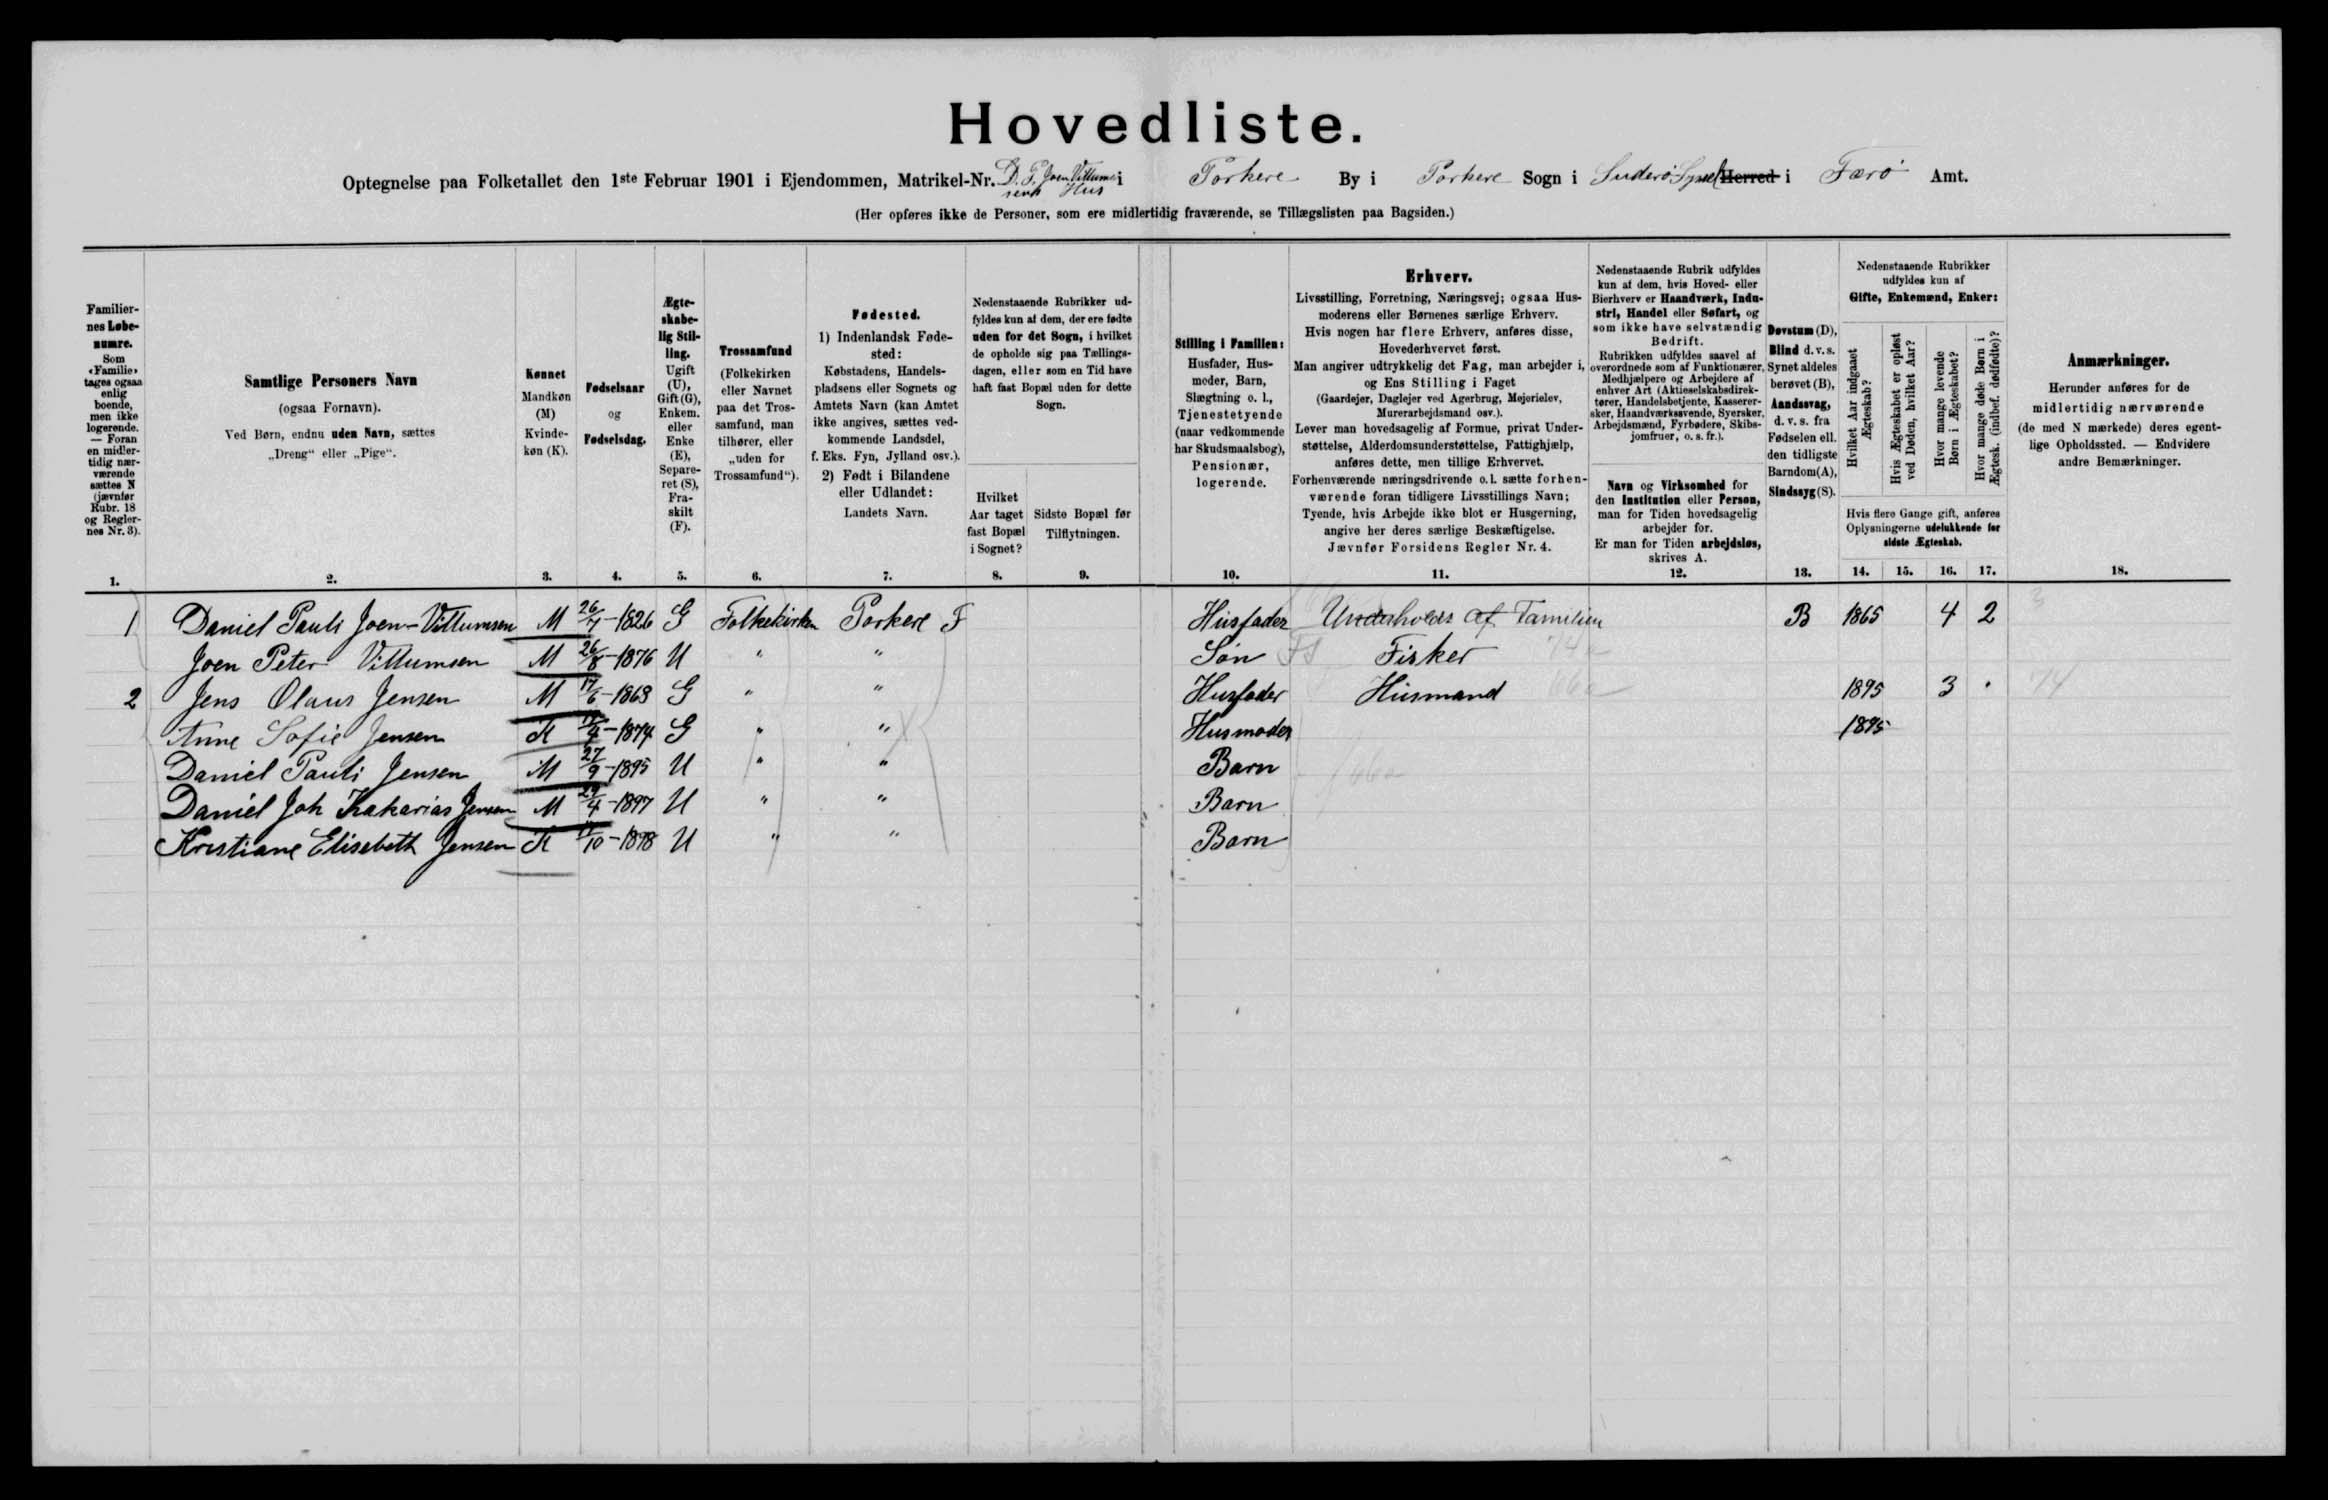 Hovedliste.
Optegnelse paa Folketallet den 1ste Februar 1901 i Ejendommen, Matrikel-Nr. D. P. Joen Vittumsens Hus i Porkere By i Porkere Sogn i Suderø Syssel Herred i Færø Amt.
(Her opføres ikke de Personer, som ere midlertidig fraværende, se Tillægslisten paa Bagsiden.)
Familier-
nes Løbe-
numre.
Som
«Familie»
tages ogsaa
enlig
boende,
men ikke
logerende.
— Foran
en midler-
tidig nær-
værende
sættes N
(jævnfør
Rubr. 18
og Regler-
nes Nr. 3).
1.
Samtlige Personers Navn
(ogsaa Fornavn).
Ved Børn, endnu uden Navn, sættes
„Dreng“ eller „Pige“.
2.
Kønnet
Mandkøn
(M)
Kvinde-
køn (K).
3.
Fødselsaar
og
Fødselsdag.
4.
Ægte-
skabe-
lig Stil-
ling.
Ugift
(U),
Gift (G),
Enkem.
eller
Enke
(E),
Separe-
ret (S),
Fra-
skilt
(F).
5.
Trossamfund
(Folkekirken
eller Navnet
paa det Tros-
samfund, man
tilhører, eller
„uden for
Trossamfund“).
6.
Fødested.
1) Indenlandsk Føde-
sted:
Købstadens, Handels-
pladsens eller Sognets og
Amtets Navn (kan Amtet
ikke angives, sættes ved-
kommende Landsdel,
f. Eks. Fyn, Jylland osv.).
2) Født i Bilandene
eller Udlandet:
Landets Navn.
7.
Nedenstaaende Rubrikker ud-
fyldes kun af dem, der ere fødte
uden for det Sogn, i hvilket
de opholde sig paa Tællings-
dagen, eller som en Tid have
haft fast Bopæl uden for dette
Sogn.
Hvilket
Aar taget
fast Bopæl
i Sognet?
8.
Sidste Bopæl før
Tilflytningen.
9.
Stilling i Familien:
Husfader, Hus-
moder, Barn,
Slægtning o. l.,
Tjenestetyende
(naar vedkommende
har Skudsmaalsbog),
Pensionær,
logerende.
10.
Erhverv.
Livsstilling, Forretning, Næringsvej; ogsaa Hus-
moderens eller Børnenes særlige Erhverv.
Hvis nogen har flere Erhverv, anføres disse,
Hovederhvervet først.
Man angiver udtrykkelig det Fag, man arbejder i,
og Ens Stilling i Faget
(Gaardejer, Daglejer ved Agerbrug, Mejerielev,
Murerarbejdsmand osv.).
Lever man hovedsagelig af Formue, privat Under-
støttelse, Alderdomsunderstøttelse, Fattighjælp,
anføres dette, men tillige Erhvervet.
Forhenværende næringsdrivende o. l. sætte forhen-
værende foran tidligere Livsstillings Navn;
Tyende, hvis Arbejde ikke blot er Husgerning,
angive her deres særlige Beskæftigelse.
Jævnfør Forsidens Regler Nr. 4.
11.
Nedenstaaende Rubrik udfyldes
kun af dem, hvis Hoved- eller
Bierhverv er Haandværk, Indu-
stri, Handel eller Søfart, og
som ikke have selvstændig
Bedrift.
Rubrikken udfyldes saavel af
overordnede som af Funktionærer,
Medhjælpere og Arbejdere af
enhver Art (Aktieselskabsdirek-
tører, Handelsbetjente, Kasserer-
sker, Haandværkssvende, Syersker,
Arbejdsmænd, Fyrbødere, Skibs-
jomfruer, o. s. fr.).
Navn og Virksomhed for
den Institution eller Person,
man for Tiden hovedsagelig
arbejder for.
Er man for Tiden arbejdsløs,
skrives A.
12.
Døvstum (D),
Blind d. v. s.
Synet aldeles
berøvet (B),
Aandssvag,
d. v. s. fra
Fødselen ell.
den tidligste
Barndom (A),
Sindssyg (S).
13.
Nedenstaaende Rubrikker
udfyldes kun af
Gifte, Enkemænd, Enker:
Hvilket Aar indgaaet
Ægteskab?
Hvis Ægteskabet er opløst
ved Døden, hvilket Aar?
Hvor mange levende
Børn i Ægteskabet?
Hvor mange døde Børn i
Ægtesk. (indbef. dødfødte)?
Hvis flere Gange gift, anføres
Oplysningerne udelukkende for
sidste Ægteskab.
14. 15. 16. 17.
Anmærkninger.
Herunder anføres for de
midlertidig nærværende
(de med N mærkede) deres egent-
lige Opholdssted. — Endvidere
andre Bemærkninger.
18.
1 Daniel Pauli Joen-Vittumsen M 26/7-1826 G Folkekirken Porkere F Husfader Underholdes af Familien B 1865 4 2 3
Joen Peter Vittumsen M 26/8-1876 U " " Søn FS Fisker 74a
2 Jens Olaus Jensen M 17/6-1863 G " " Husfader Husmand 66a 1895 3 . 74
Anne Sofie Jensen K -1874 G " " Husmoder 1895
Daniel Pauli Jensen M 27/9-1895 U " " Barn 66a
Daniel Joh Zakarias Jensen M 29/4-1897 U " " Barn
Kristiane Elisebeth Jensen K /10-1898 U " " Barn